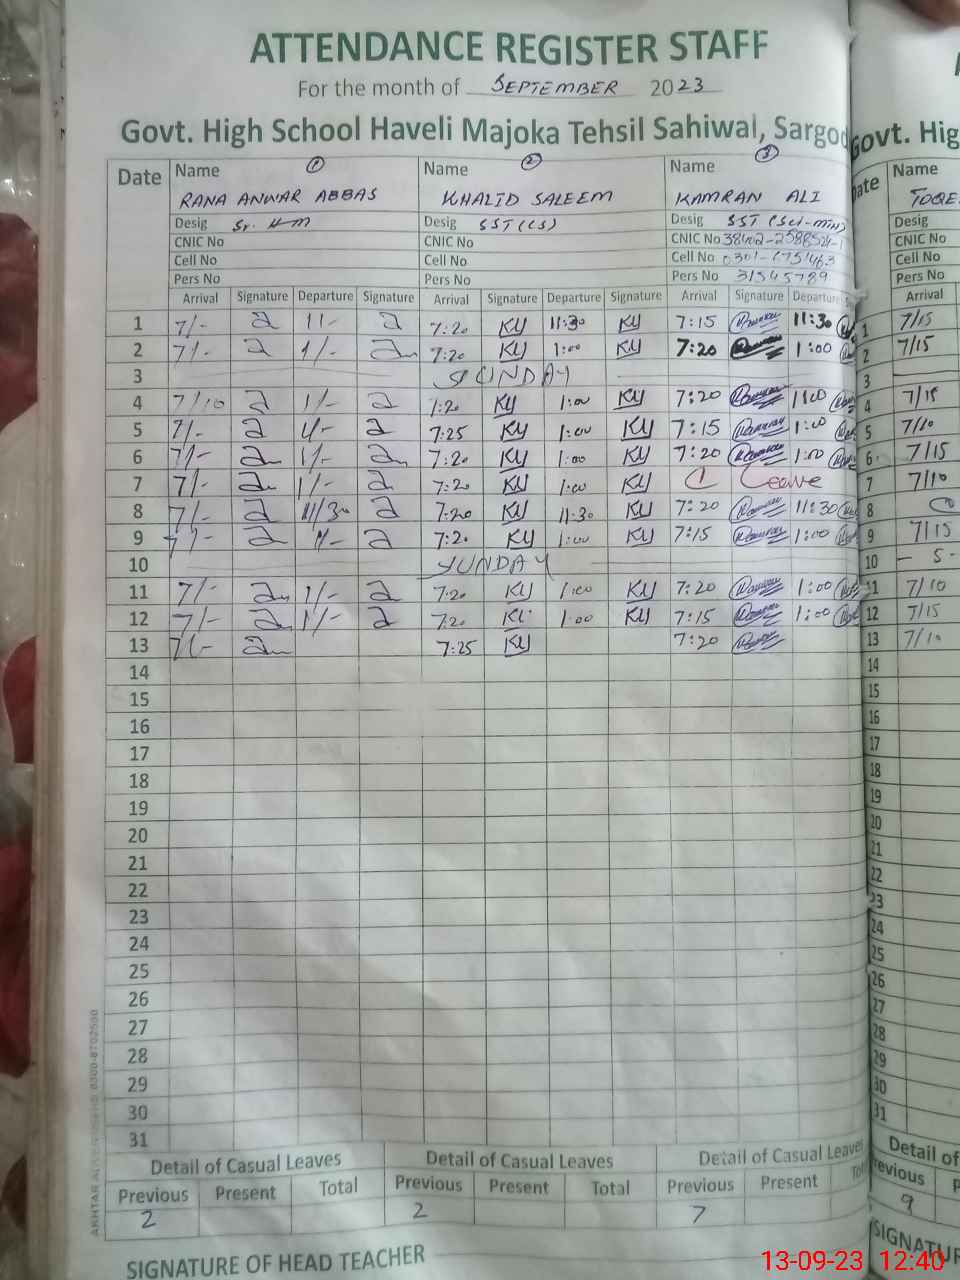 ATTENDANCE REGISTER STAFF
For the month of SEPTEMBER 2023
Govt. High School Haveli Majoka Tehsil Sahiwal, Sargod
Govt. Hig
Date Name ① Name ② Name ③ Name
RANA ANWAR ABBAS KHALID SALEEM KAMRAN ALI TOQE
Desig Sr. HM Desig SST (CS) Desig SST (Sci-Min) Desig
CNIC No CNIC No CNIC No CNIC
Cell No Cell No Cell No Cell
Pers No Pers No Pers No 31545789 Pers
Arrival Signature Departure Signature Arrival Signature Departure Signature Arrival Signature Departure Arrival
1 7/- 11- 7:20 KU 11:30 KU 7:15 11:30 1 7/15
2 7/- 1/- 7:20 KU 1:00 KU 7:20 1:00 2 7/15
3 SUNDAY 3
4 7/10 1/- 7:20 KU 1:00 KU 7:20 1:00 4 7/15
5 7/- 7:25 KU 1:00 KU 7:15 1:00 5 7/10
6 7/- 1/- 7:20 KU 1:00 KU 7:20 1:00 6 7/15
7 7/- 1/- 7:20 KU 1:00 KU C Leave 7 7/10
8 7/- 11/30 7:20 KU 11:30 KU 7:20 11:30 8
9 7/- 7:20 KU 1:00 KU 7:15 1:00 9 7/15
10 SUNDAY 10 - S-
11 7/- 1/- 7:20 KU 1:00 KU 7:20 1:00 11 7/10
12 7/- 1/- 7:20 KU 1:00 KU 7:15 1:00 12 7/15
13 7/- 7:25 KU 7:20 13 7/10
14 14
15 15
16 16
17 17
18 18
19 19
20 20
21 21
22 22
23 23
24 24
25 25
26 26
27 27
28 28
29 29
30 30
31 31
Detail of Casual Leaves Detail of Casual Leaves Detail of Casual Leaves Detail of
Previous Present Total Previous Present Total Previous Present Tot revious P
2 2 7 9
SIGNATURE OF HEAD TEACHER
SIGNATUR
13-09-23 12:40